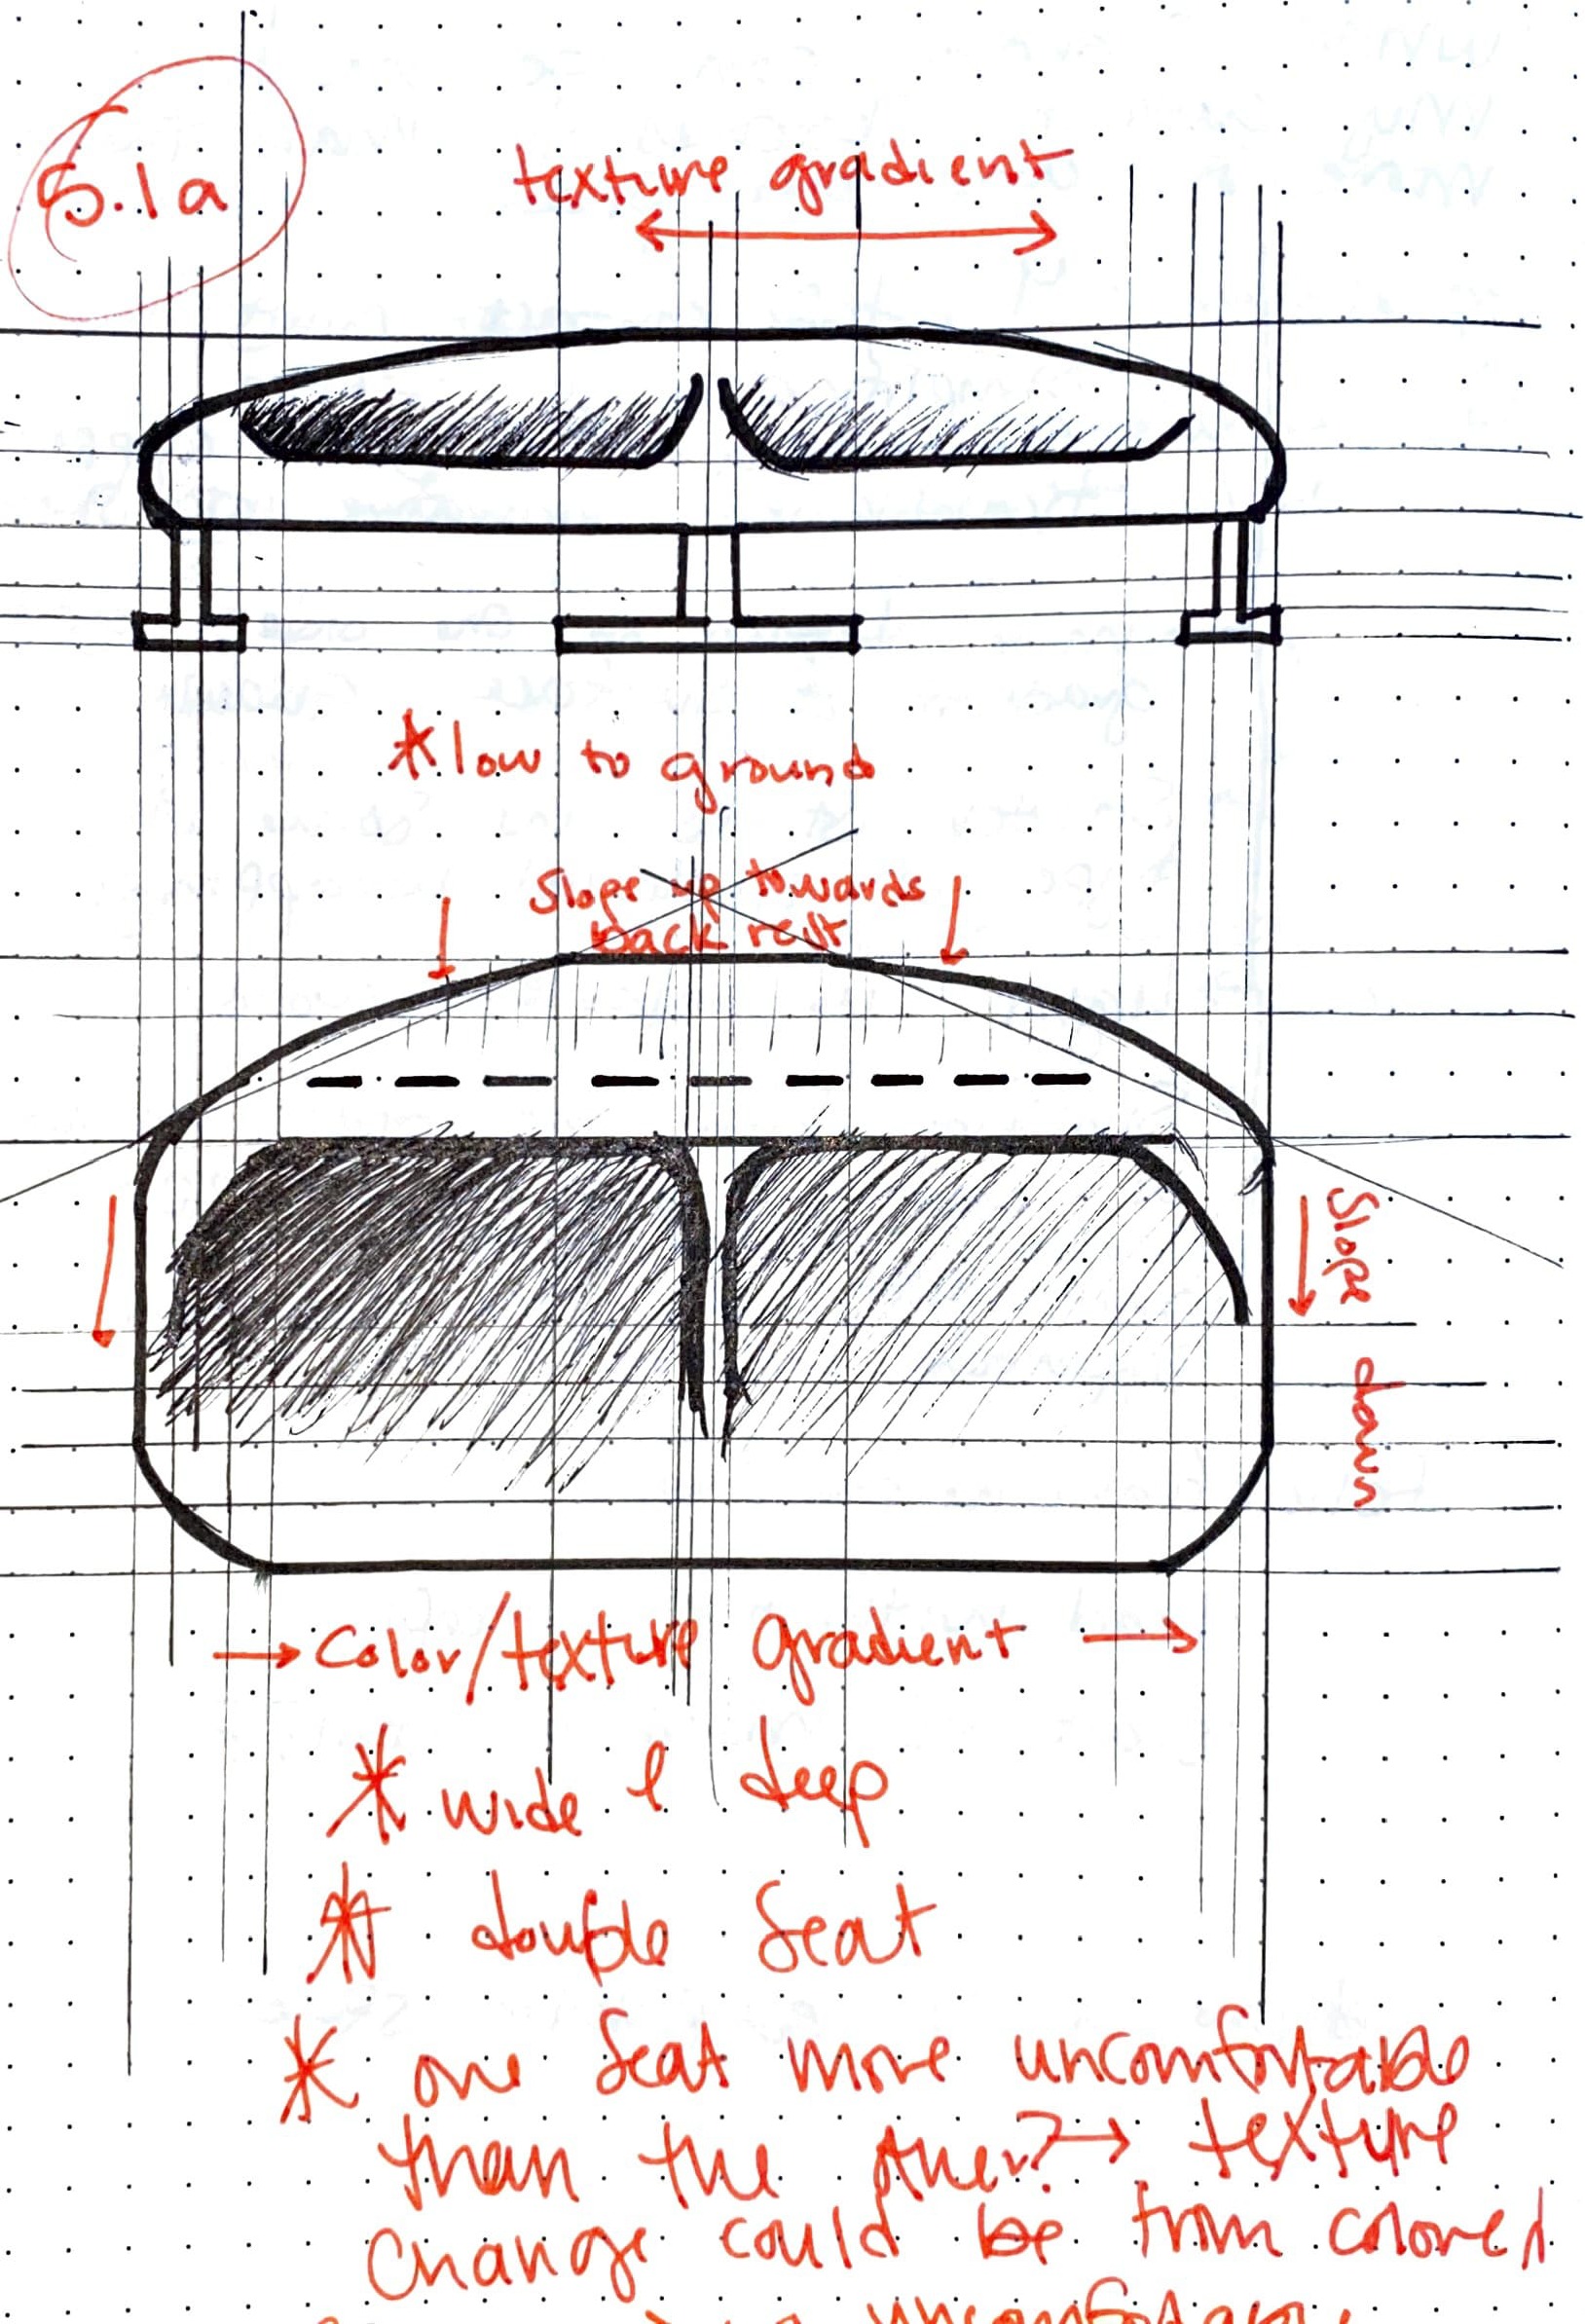 5.1a
texture gradient
* low to ground
Slope up towards
back rest
Slope down
→ Color/texture gradient →
* wide & deep
* double seat
* one seat more uncomfortable
than the other? → texture
change could be from colored
uncomfortable